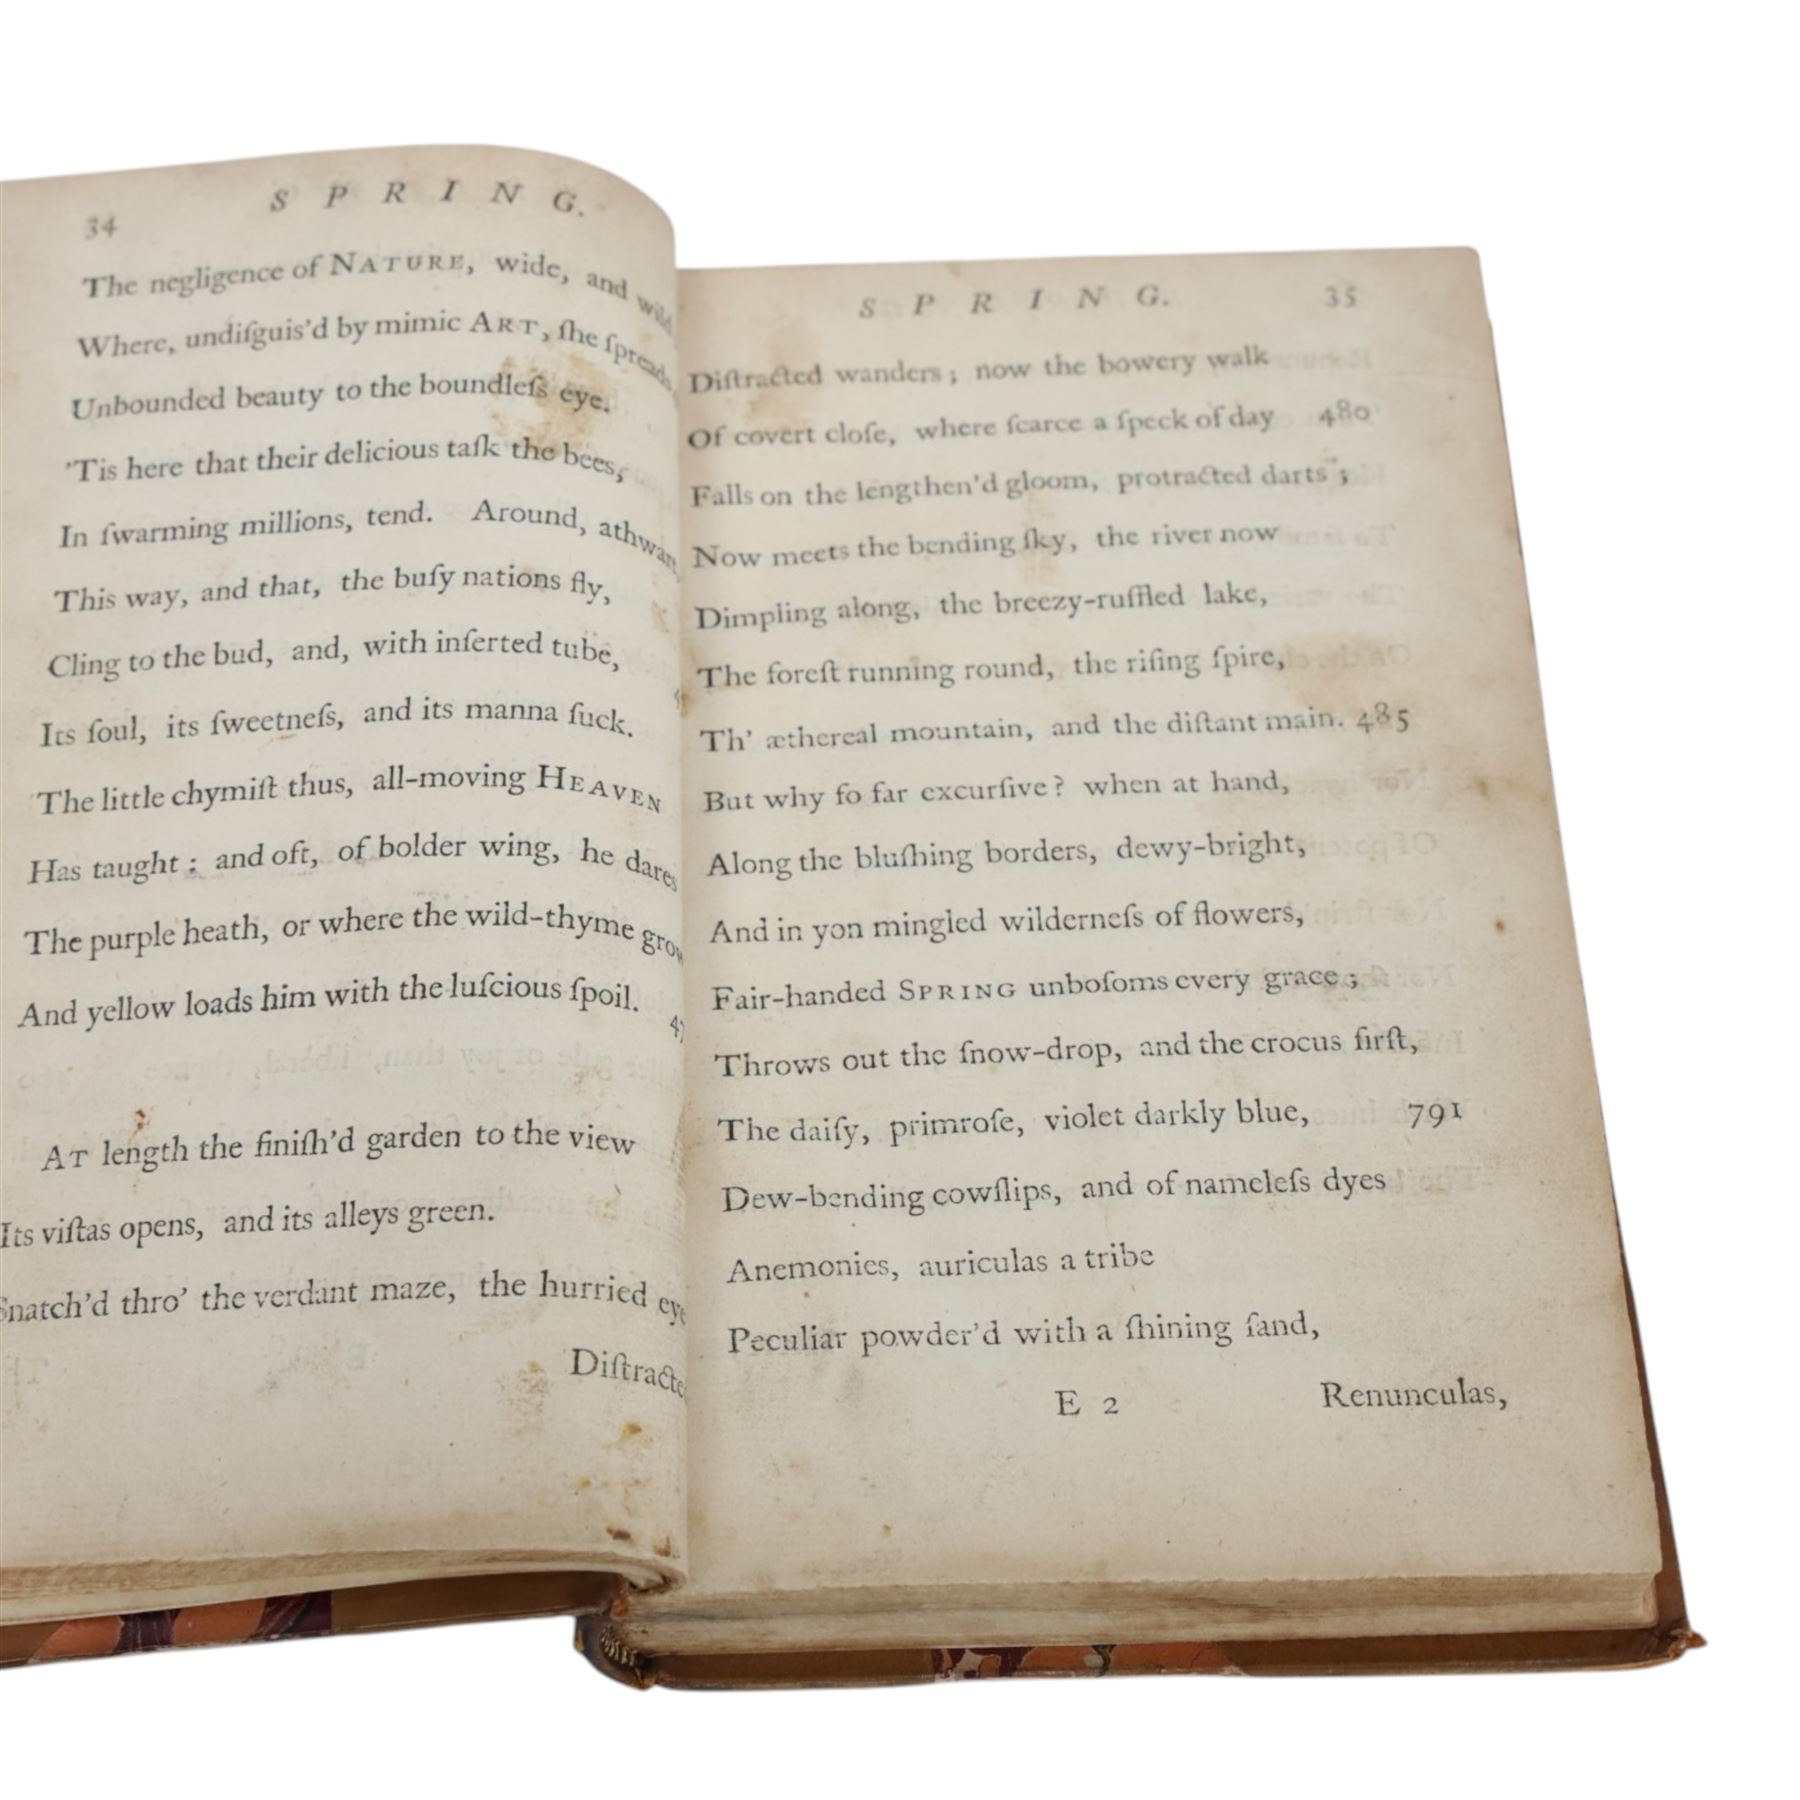 34
S P R I N G.
The negligence of NATURE, wide, and wild
Where, undiſguis'd by mimic ART, ſhe ſpreads
Unbounded beauty to the boundleſs eye.
'Tis here that their delicious taſk the bees,
In ſwarming millions, tend. Around, athwart
This way, and that, the buſy nations fly,
Cling to the bud, and, with inſerted tube,
Its ſoul, its ſweetneſs, and its manna ſuck.
The little chymiſt thus, all-moving HEAVEN
Has taught: and oft, of bolder wing, he dares
The purple heath, or where the wild-thyme grow
And yellow loads him with the luſcious ſpoil.
AT length the finiſh'd garden to the view
Its viſtas opens, and its alleys green.
Snatch'd thro' the verdant maze, the hurried eye
Diſtracte
S P R I N G. 35
Diſtracted wanders; now the bowery walk
Of covert cloſe, where ſcarce a ſpeck of day 480
Falls on the lengthen'd gloom, protracted darts;
Now meets the bending ſky, the river now
Dimpling along, the breezy-ruffled lake,
The foreſt running round, the riſing ſpire,
Th' æthereal mountain, and the diſtant main. 485
But why ſo far excurſive? when at hand,
Along the bluſhing borders, dewy-bright,
And in yon mingled wilderneſs of flowers,
Fair-handed SPRING unboſoms every grace;
Throws out the ſnow-drop, and the crocus firſt,
The daiſy, primroſe, violet darkly blue, 791
Dew-bending cowſlips, and of nameleſs dyes
Anemonies, auriculas a tribe
Peculiar powder'd with a ſhining ſand,
E 2 Renunculas,